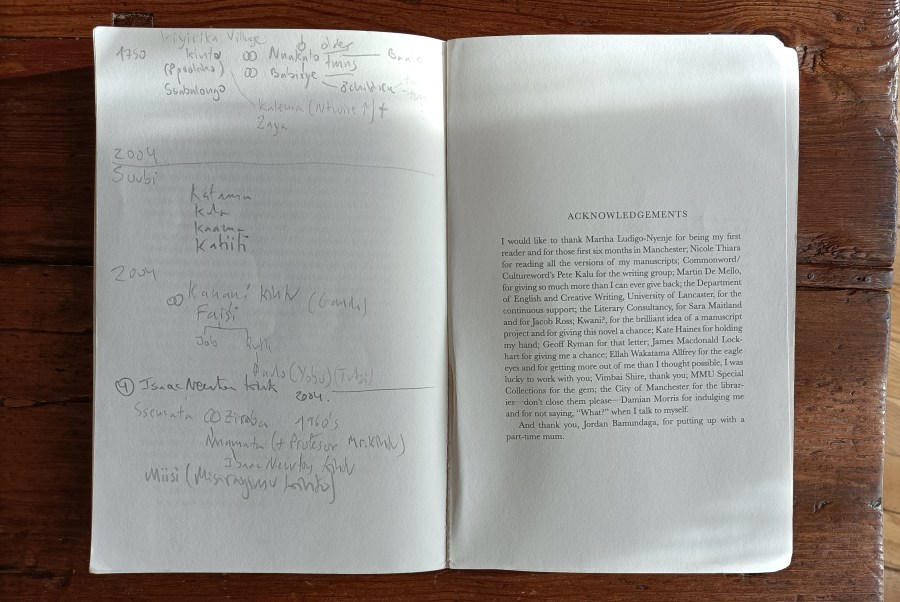 Kiyirika Village
1750 Kintu ∞ Nnakato older twins
(Ppookino) ∞ Babirye children
Ssabalongo
Kalema (Ntwire ↑) +
Zaya
2004
Suubi
Kulata
Kaama
Kahiti
2004
∞ Kanani Kintu
Faisi
Job Ruth
Paulo (Yobu) (Tutsi)
④ Isaac Newton Kintu
2004.
Ssemata ∞ Ziraba 1960's
Nnamata (+ Profesor Mr. Kintu)
Isaac Newton Kintu
Miisi (Misirayimu Kintu)
ACKNOWLEDGEMENTS
I would like to thank Martha Ludigo-Nyenje for being my first
reader and for those first six months in Manchester; Nicole Thiara
for reading all the versions of my manuscripts; Commonword/
Cultureword's Pete Kalu for the writing group; Martin De Mello,
for giving so much more than I can ever give back; the Department
of English and Creative Writing, University of Lancaster, for the
continuous support; the Literary Consultancy, for Sara Maitland
and for Jacob Ross; Kwani?, for the brilliant idea of a manuscript
project and for giving this novel a chance; Kate Haines for holding
my hand; Geoff Ryman for that letter; James Macdonald Lock-
hart for giving me a chance; Ellah Wakatama Allfrey for the eagle
eyes and for getting more out of me than I thought possible, I was
lucky to work with you; Vimbai Shire, thank you; MMU Special
Collections for the gem; the City of Manchester for the librar-
ies—don't close them please—Damian Morris for indulging me
and for not saying, "What?" when I talk to myself.
And thank you, Jordan Bamundaga, for putting up with a
part-time mum.